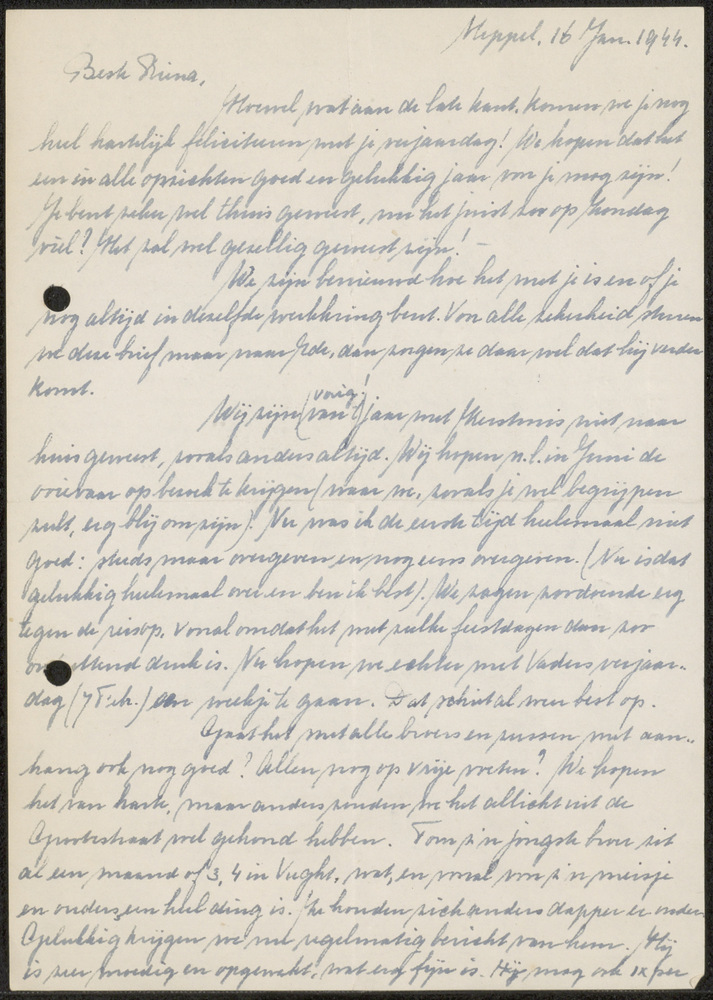 Meppel, 16 Jan. 1944.
Beste Riena,
Hoewel wat aan de late kant, komen we je nog
heel hartelijk feliciteren met je verjaardag! We hopen dat het
een in alle opzichten goed en gelukkig jaar voor je mag zijn!
Je bent zeker wel thuis geweest, nu het juist zoo op Zondag
viel? Het zal wel gezellig geweest zijn! -
We zijn benieuwd hoe het met je is en of je
nog altijd in dezelfde werkkring bent. Voor alle zekerheid sturen
we deze brief maar naar Ede, dan zorgen ze daar wel dat hij verder
komt.
Wij zijn (van 't) vorig! jaar met Kerstmis niet naar
huis geweest, zoals anders altijd. Wij hopen n.l. in Juni de
ooievaar op bezoek te krijgen (waar we, zoals je wel begrijpen
zult, erg blij om zijn). Nu was ik de eerste tijd heelemaal niet
goed: steeds maar overgeven en nog eens overgeven. (Nu is dat
gelukkig heelemaal over en ben ik best). We zagen zodoende erg
tegen de reis op, vooral omdat het met zulke feestdagen dan zoo
ontzettend druk is. Nu hopen we echter met Vaders verjaar-
dag (7 Febr.) een weekje te gaan. Dat schiet al weer best op.
Gaat het met alle broers en zussen met aan-
hang ook nog goed? Allen nog op vrije voeten? We hopen
het van harte, maar anders zouden we het allicht uit de
wel gehoord hebben. Tom z'n jongste broer zit
al een maand of 3, 4 in Vught, wat, en vooral voor z'n meisje
en ouders, een heel ding is. Ze houden zich anders dapper er onder.
Gelukkig krijgen we nu regelmatig bericht van hem. Hij
is zeer moedig en opgewekt, wat erg fijn is. Hij mag ook 1x per